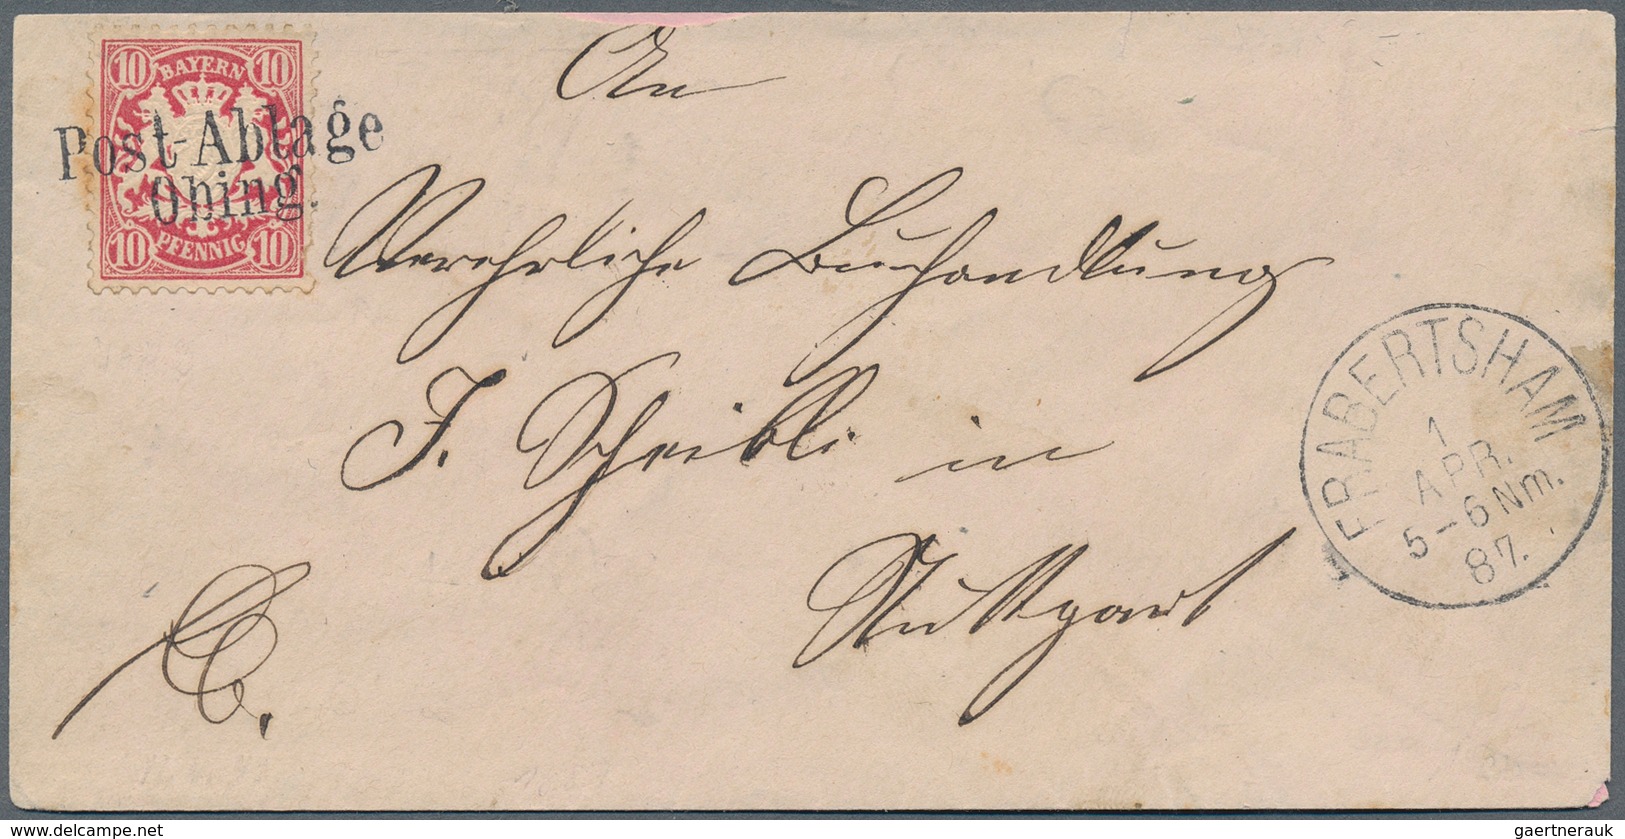 10 BAYERN 10
Post-Ablage
Obing.
10 PFENNIG 10
An
Verehrliche Buchhandlung
J. Scheible in
Stuttgart
FRABERTSHAM
1
APR.
5-6 Nm.
87.
delcampe.net
gaertnerauk